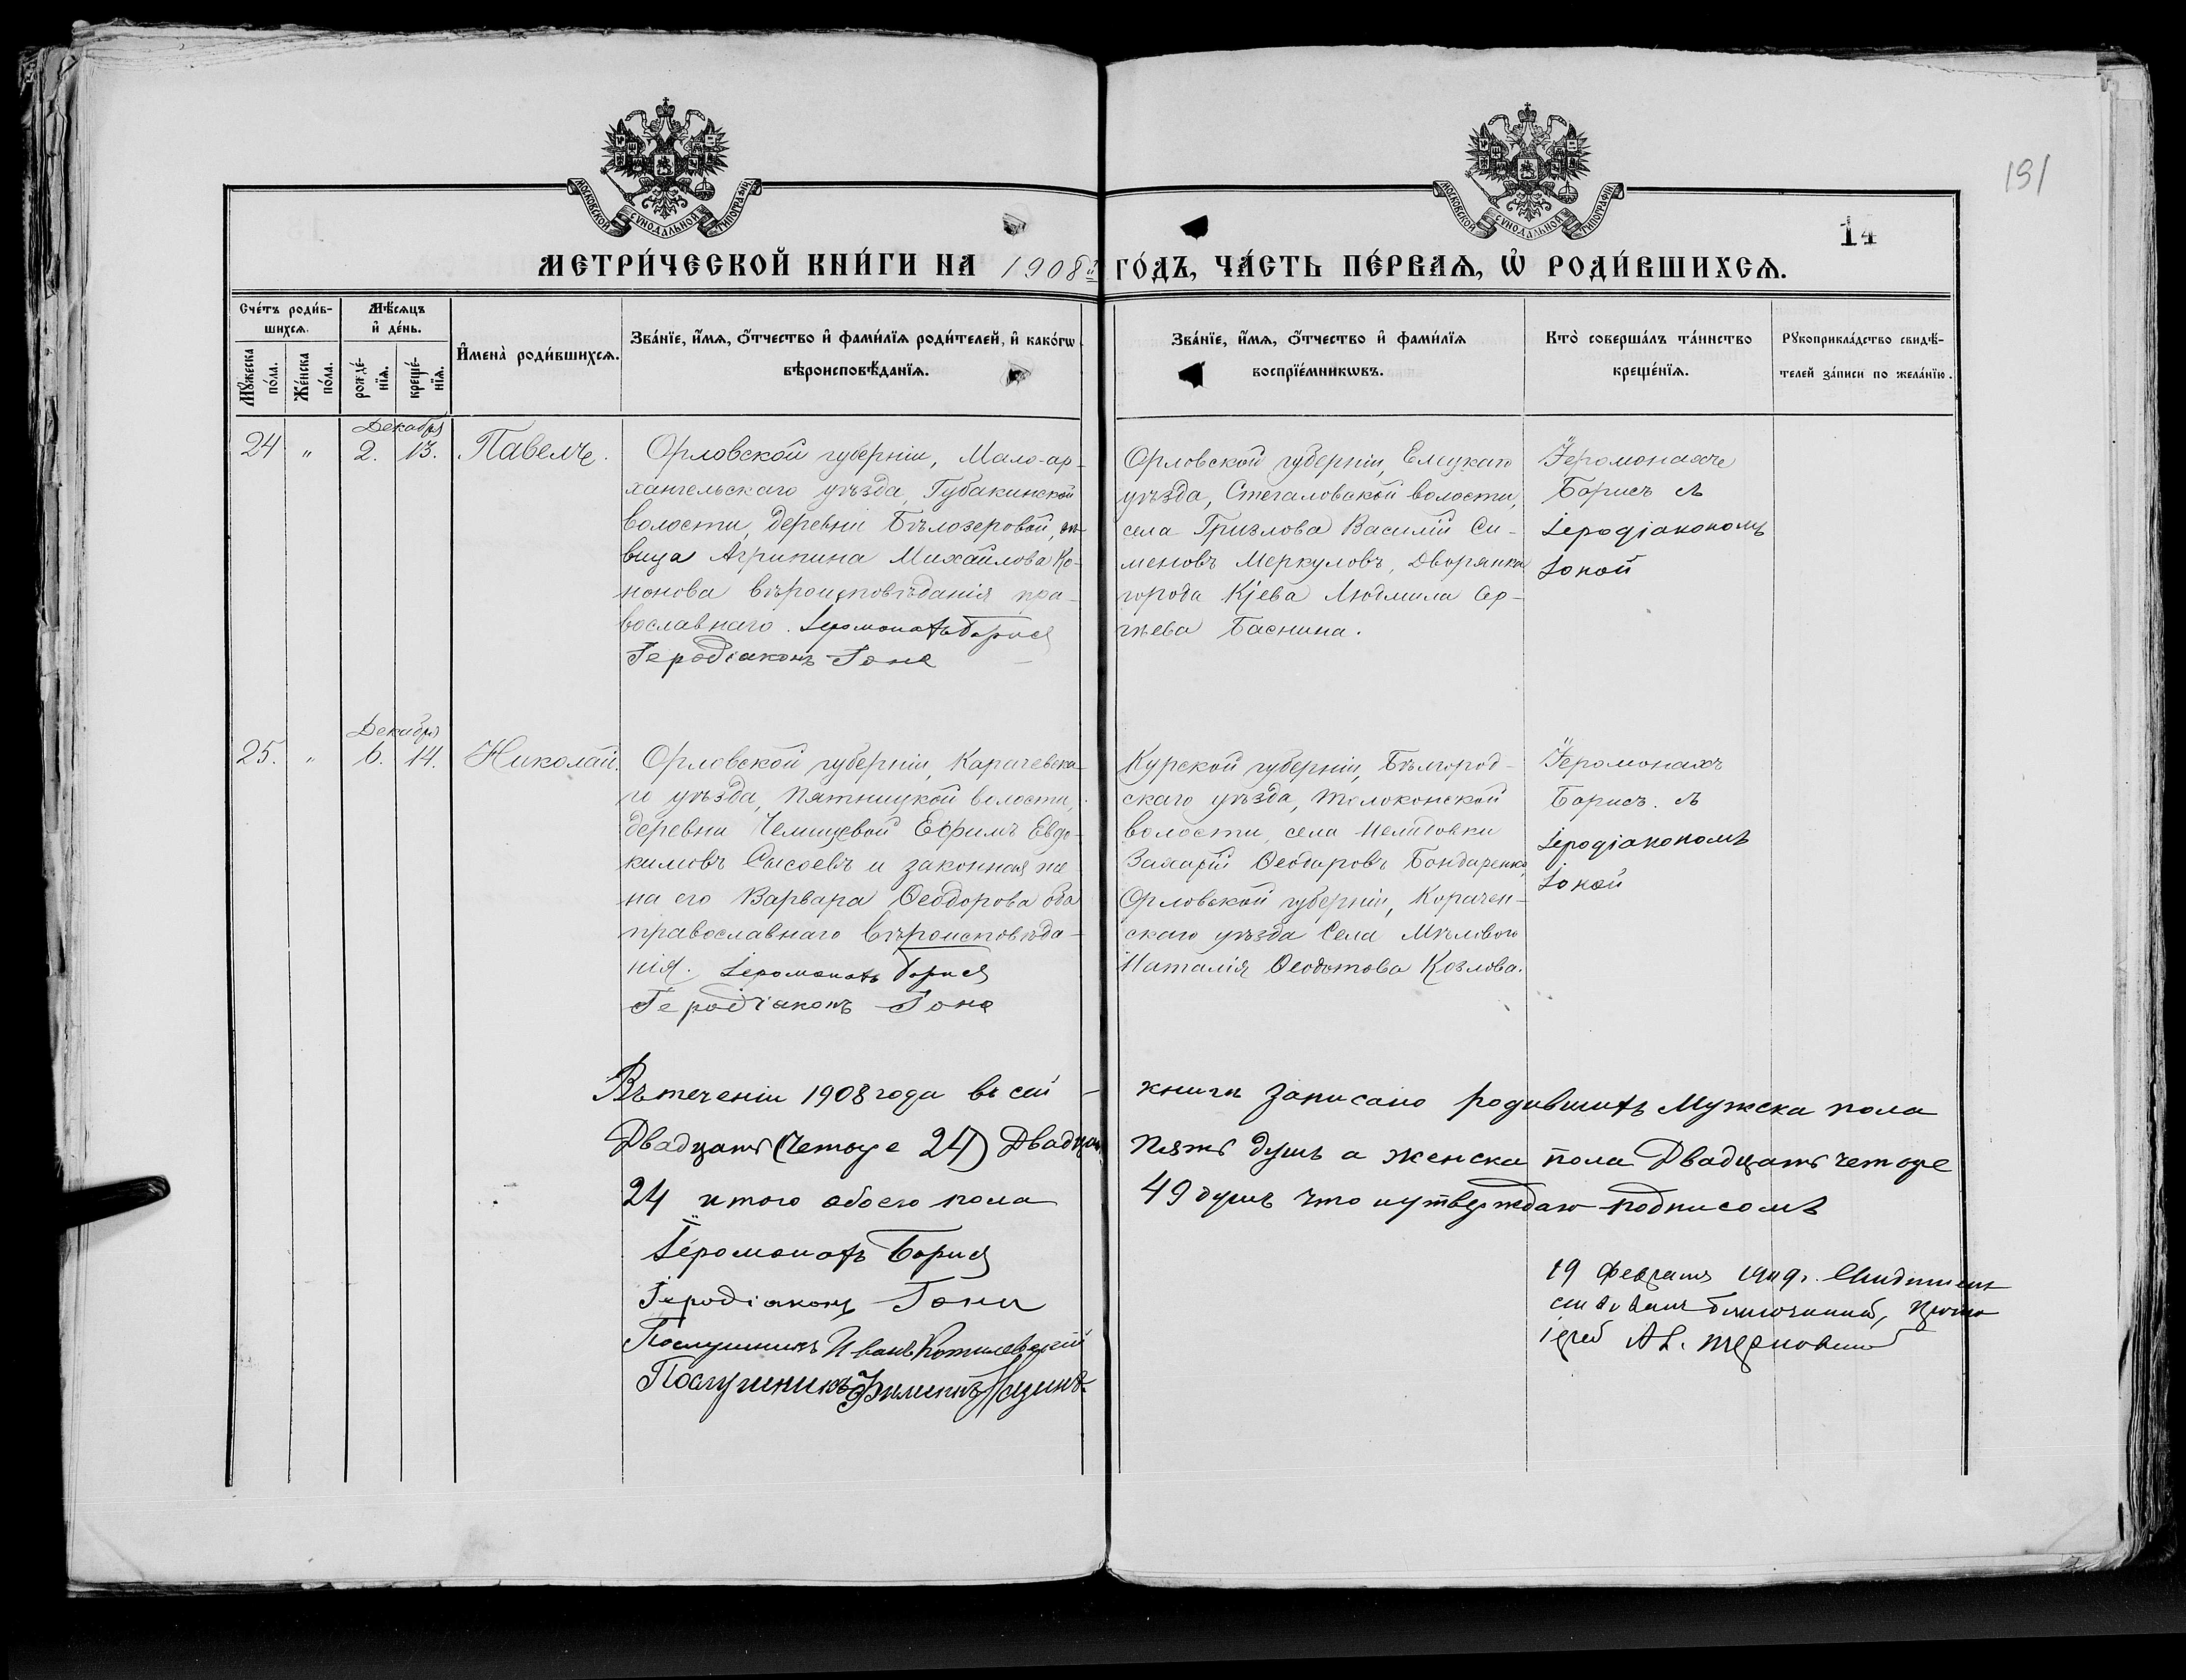 191
14
МОСКОВСКОЙ СѴНОДАЛЬНОЙ ТИПОГРАФІИ
МОСКОВСКОЙ СѴНОДАЛЬНОЙ ТИПОГРАФІИ
МЕТРИ́ЧЕСКОЙ КНИ́ГИ НА 1908й ГО́ДЪ, ЧА́СТЬ ПЕ́РВАѦ, Ѡ҆ РОДИ́ВШИХСѦ.
Сче́тъ роди́в-
шихсѧ.
Мѣ́сѧцъ
и҆ де́нь.
Мꙋ́жеска
по́ла.
Же́нска
по́ла.
рожде́-
нїѧ.
креще́-
нїѧ.
И҆мена̀ роди́вшихсѧ.
Зва́нїе, и҆́мѧ, ѻ҆́тчество и҆ фами́лїѧ роди́телей, и҆ како́гѡ
вѣроисповѣ́данїѧ.
Зва́нїе, и҆́мѧ, ѻ҆́тчество и҆ фами́лїѧ
воспрїе́мникѡвъ.
Кто̀ соверша́лъ та́инство
креще́нїѧ.
Рꙋкоприкла́дство свидѣ́-
телей за́писи по жела́нїю.
Декабря
24 " 2. 13. Павелъ.
Орловской губерніи, Мало-ар-
хангельскаго уѣзда, Губакинской
волости, деревни Бѣлозеровой, дѣ-
вица Агрипина Михайлова Ко-
нонова вѣроисповѣданія пра-
вославнаго. Іеромонахъ Борисъ
Іеродіаконъ Іона
Орловской губерніи, Елецкаго
уѣзда, Стегаловской волости,
села Гризлова Василій Си-
меновъ Меркуловъ, Дворянка
города Кіева Людмила Сер-
гѣева Баснина.
Іеромонахъ
Борисъ съ
Іеродіакономъ
Іоной
Декабря
25. " 6. 14. Николай.
Орловской губерніи, Карачевска-
го уѣзда, Пятницкой волости,
деревни Челищевой Ефимъ Евдо-
кимовъ Сысоевъ и законная же-
на его Варвара Ѳеодорова оба
православнаго вѣроисповѣда-
нія. Іеромонахъ Борисъ
Іеродіаконъ Іона
Курской губерніи, Бѣлгород-
скаго уѣзда, Толоконской
волости, села Нелидовки
Захарій Ѳеодоровъ Бондаренко,
Орловской губерніи, Карачев-
скаго уѣзда Села Мѣлового
Наталія Ѳеодотова Козлова.
Іеромонахъ
Борисъ. съ
Іеродіакономъ
Іоной
Въ теченіи 1908 года въ сей - книги записано родившихъ Мужска пола
Двадцать (четыре 24) Двадцать пять душъ а женска пола Двадцать четыре
24 итого обоего пола 49 душъ что и утверждаю подписомъ
Іеромонахъ Борисъ
Іеродіаконъ Іона
Послушникъ Иванъ
Послушникъ
19 Февраля 1909 г. Свидетель-
ствовалъ благочинный, прото-
іерей Ал. Терновскій